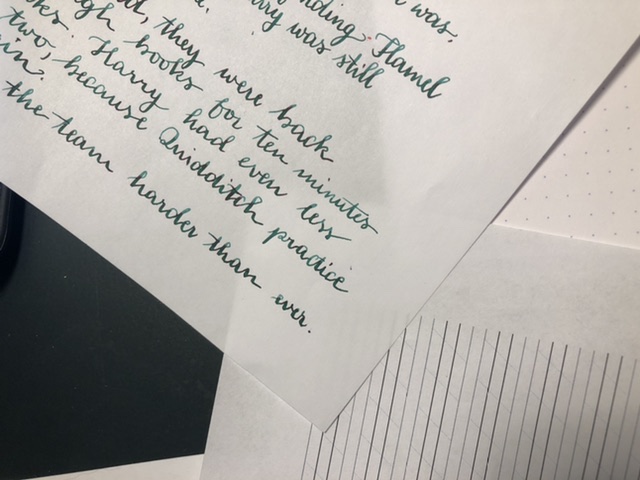 was.
Flamel
was still
they were back
books for ten minutes
Harry had even less
two, because Quidditch practice
the team harder than ever.